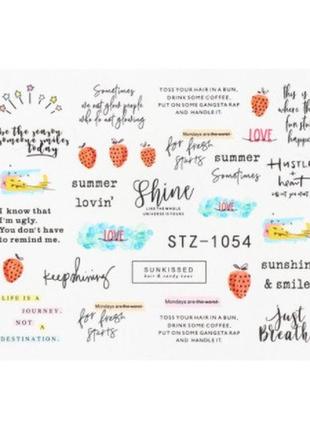 Sometimes
we not glow people
who do not glowing
TOSS YOUR HAIR IN A BUN,
DRINK SOME COFFEE,
PUT ON SOME GANGSTA RAP
AND HANDLE IT.
this is
where the
fun
happen
be the reason
someone smiles
today
Mondays are the worst
for fresh
starts
LOVE
summer
Sometimes
HUSTLE
+
heart
summer
lovin'
Shine
LIKE THE WHOLE
UNIVERSE IS YOURS
I know that
I'm ugly.
You don't have
to remind me.
LOVE
STZ-1054
LOVE
keepshining
SUNKISSED
sunshine
& smile
LIFE IS A
JOURNEY.
NOT A
DESTINATION.
Mondays are the worst
for fresh
starts
TOSS YOUR HAIR IN A BUN,
DRINK SOME COFFEE,
PUT ON SOME GANGSTA RAP
AND HANDLE IT.
Just
Breathe